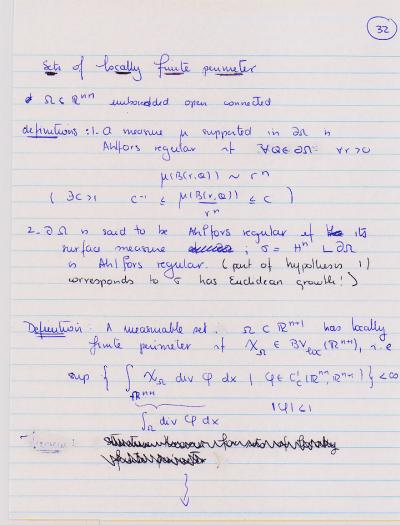 32
Sets of locally finite perimeter
Ω ⊂ ℝⁿ⁺¹ unbounded open connected
definitions : 1. A measure μ supported in ∂Ω is
Ahlfors regular if ∀Q∈∂Ω ∀r>0
μ(B(r,Q)) ~ rⁿ
( ∃C>1 C⁻¹ ≤ μ(B(r,Q))/rⁿ ≤ C )
2. ∂Ω is said to be Ahlfors regular if its
surface measure ; σ = Hⁿ L ∂Ω
is Ahlfors regular. (part of hypothesis 1)
corresponds to σ has Euclidean growth!)
Definition : A measurable set Ω ⊂ ℝⁿ⁺¹ has locally
finite perimeter if χ_Ω ∈ BV_loc(ℝⁿ⁺¹), i.e
sup { ∫_ℝⁿ⁺¹ χ_Ω div φ dx | φ∈ C¹_c(ℝⁿ⁺¹, ℝⁿ⁺¹) } <∞
∫_Ω div φ dx |φ|≤1